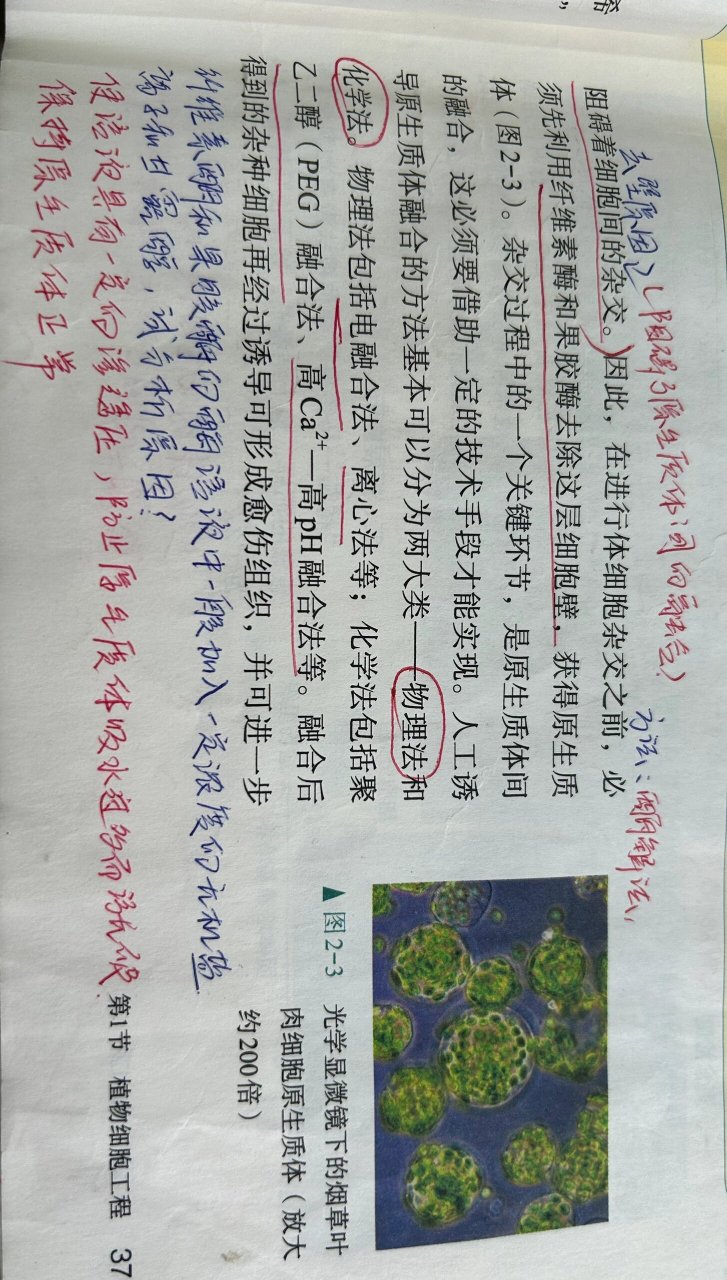 去壁原因:(阻碍了原生质体间的融合)
方法:酶解法
阻碍着细胞间的杂交。因此,在进行体细胞杂交之前,必
须先利用纤维素酶和果胶酶去除这层细胞壁,获得原生质
体(图2-3)。杂交过程中的一个关键环节,是原生质体间
的融合,这必须要借助一定的技术手段才能实现。人工诱
导原生质体融合的方法基本可以分为两大类——物理法和
化学法。物理法包括电融合法、离心法等;化学法包括聚
乙二醇(PEG)融合法、高Ca²⁺—高pH融合法等。融合后
得到的杂种细胞再经过诱导可形成愈伤组织,并可进一步
纤维素酶和果胶酶的酶溶液中一般加入一定浓度的无机盐
离子和甘露醇,试分析原因?
使溶液具有一定的渗透压,防止原生质体吸水过多而涨破.
保持原生质体正常
▲图2-3 光学显微镜下的烟草叶
肉细胞原生质体(放大
约200倍)
第1节 植物细胞工程 37